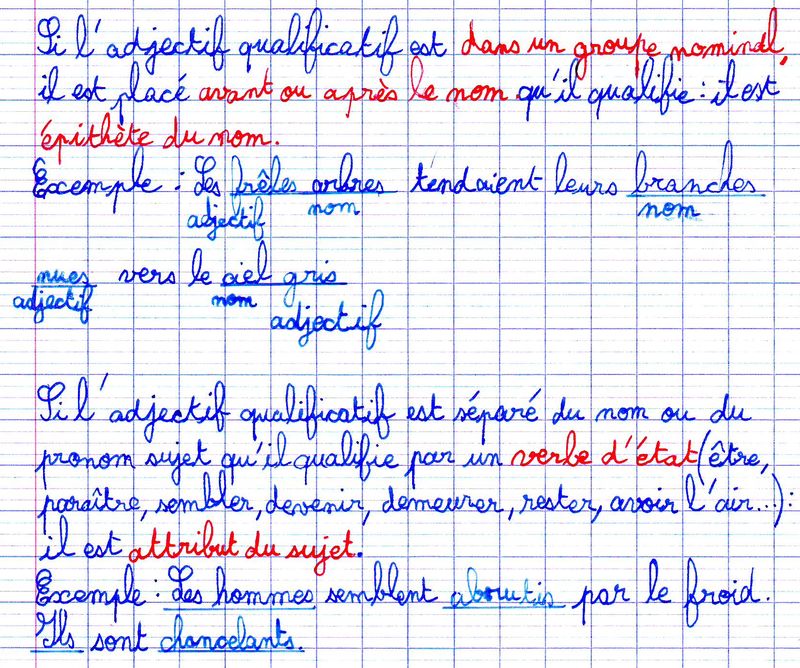 Si l'adjectif qualificatif est dans un groupe nominal,
il est placé avant ou après le nom qu'il qualifie : il est
épithète du nom.
Exemple : Les frêles arbres tendaient leurs branches
adjectif nom nom
nues vers le ciel gris
adjectif nom adjectif
Si l'adjectif qualificatif est séparé du nom ou du
pronom sujet qu'il qualifie par un verbe d'état (être,
paraître, sembler, devenir, demeurer, rester, avoir l'air...) :
il est attribut du sujet.
Exemple : Les hommes semblent abrutis par le froid.
Ils sont chancelants.